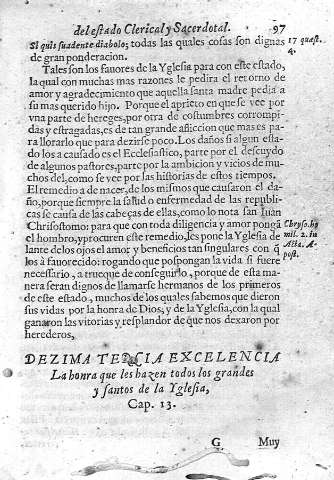 del estado Clerical y Sacerdotal. 97
Si quis suadente diabolo; todas las quales cosas son dignas
17 quæst.
4.
de gran ponderacion.
Tales son los fauores de la Yglesia para con este estado,
la qual con muchas mas razones le pedira el retorno de
amor y agradecimiento que aquella santa madre pedia a
su mas querido hijo. Porque el aprieto en que se vee por
vna parte de hereges, por otra de costumbres corrompi-
das y estragadas, es de tan grande afliccion que mas es pa-
ra llorarlo que para dezirse poco. Los daños si algun esta-
do los a causado es el Ecclesiastico, parte por el descuydo
de algunos pastores, parte por la ambicion y vicios de mu-
chos del, como se vee por las historias de estos tiempos.
El remedio a de nacer, de los mismos que causaron el da-
ño, porque siempre la salud o enfermedad de las republi-
cas se causa de las cabeças de ellas, como lo nota san Iuan
Chrisostomo: para que con toda diligencia y amor pongã
Chryso. ho
el hombro, y procuren este remedio, les pone la Yglesia de
mil. 2. in
lante de los ojos el amor y beneficios tan singulares con q̃
Acta. A-
los à fauorecido: rogando que pospongan la vida si fuere
post.
necessario, a trueque de conseguirlo, porque de esta ma-
nera seran dignos de llamarse hermanos de los primeros
de este estado, muchos de los quales sabemos que dieron
sus vidas por la honra de Dios, y de la Yglesia, con la qual
ganaron las vitorias y resplandor de que nos dexaron por
herederos,
DEZIMA TERCIA EXCELENCIA
La honra que les hazen todos los grandes
y santos de la Yglesia,
Cap. 13.
G Muy